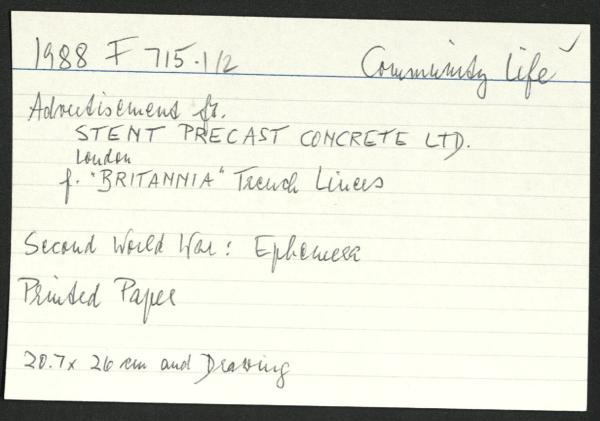 1988 F 715.1/2 Community Life ✓
Advertisement fr.
STENT PRECAST CONCRETE LTD.
London
f. "BRITANNIA" Trench Liners
Second World War: Ephemera
Printed Paper
20.7 x 26 cm and Drawing